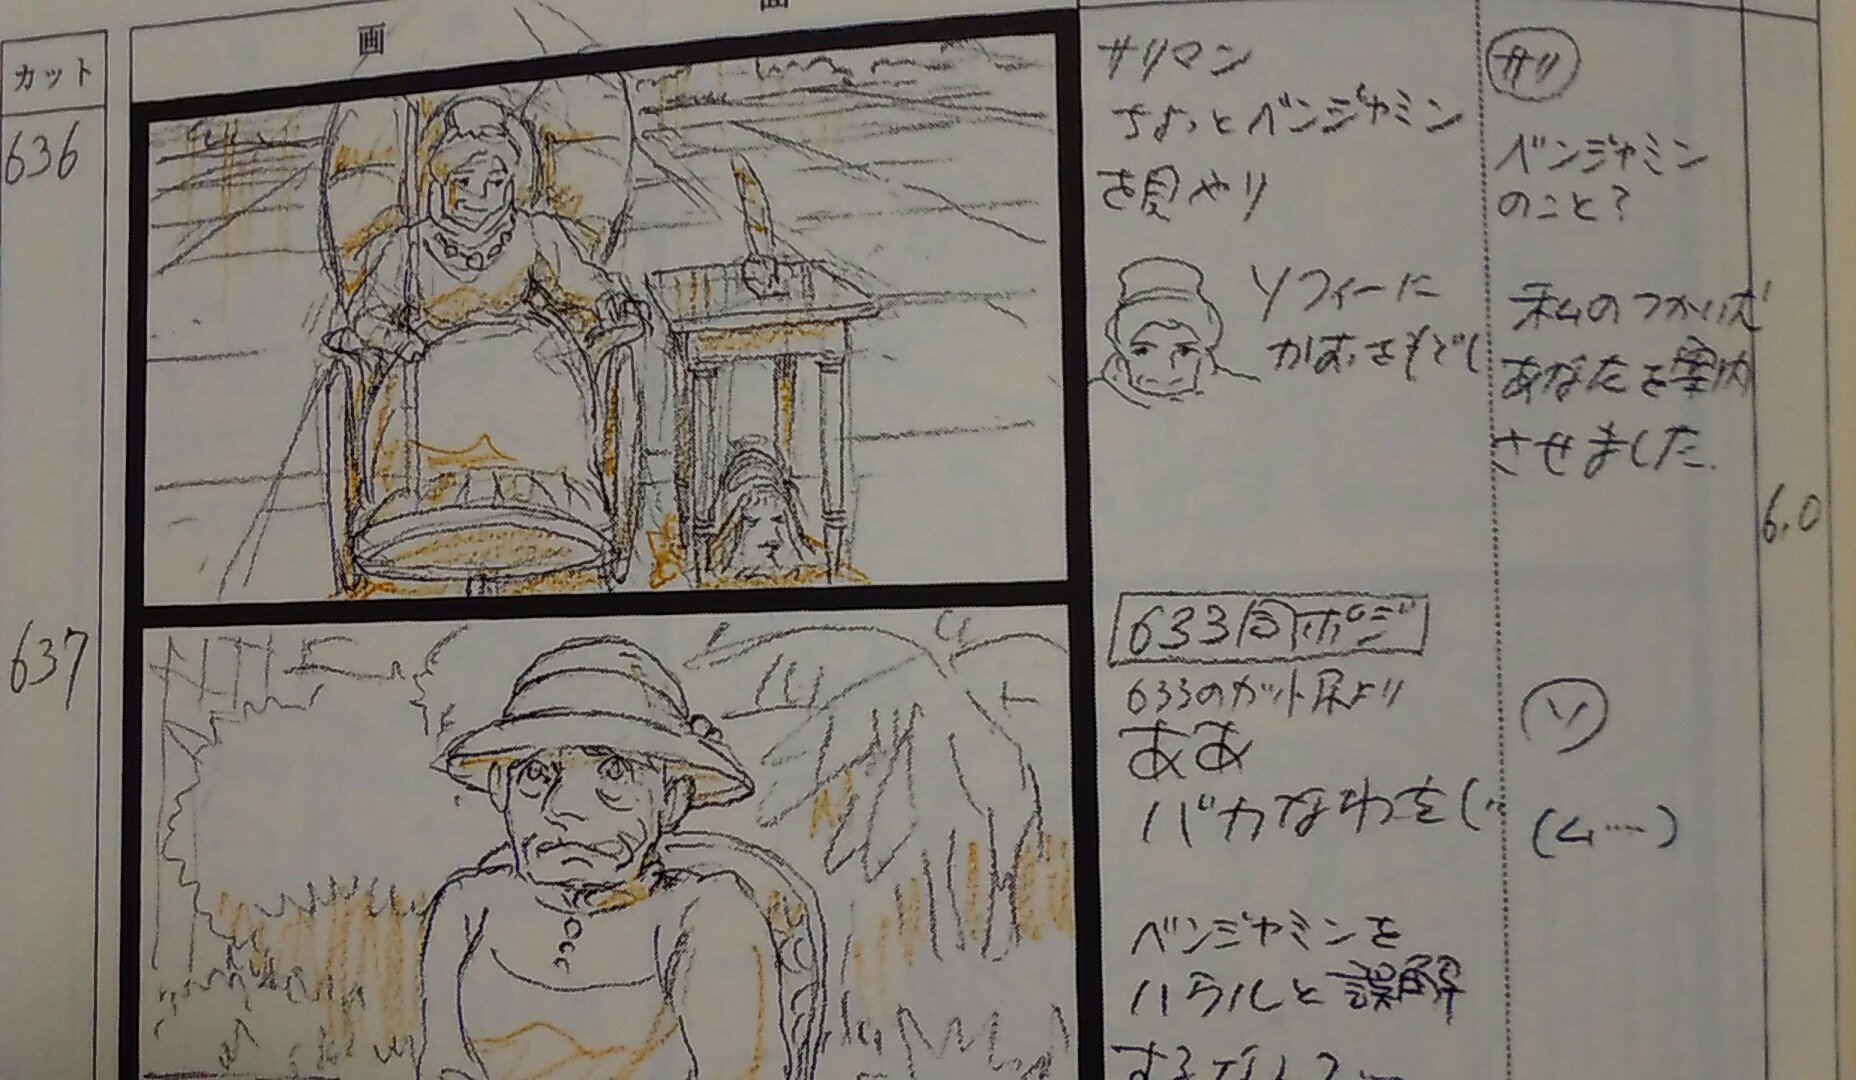 カット
画
636
サリマン
ちょっとベンジャミン
を見やり
ソフィーに
かおをもどし
サリ
ベンジャミン
のこと?
私のつかいだ
あなたを案内
させました.
6.0
637
633同ポジ
633のカット尻より
ああ
バカなわたし‥
ベンジャミンを
ハウルと誤解
するなんて
ソ
(ム…)